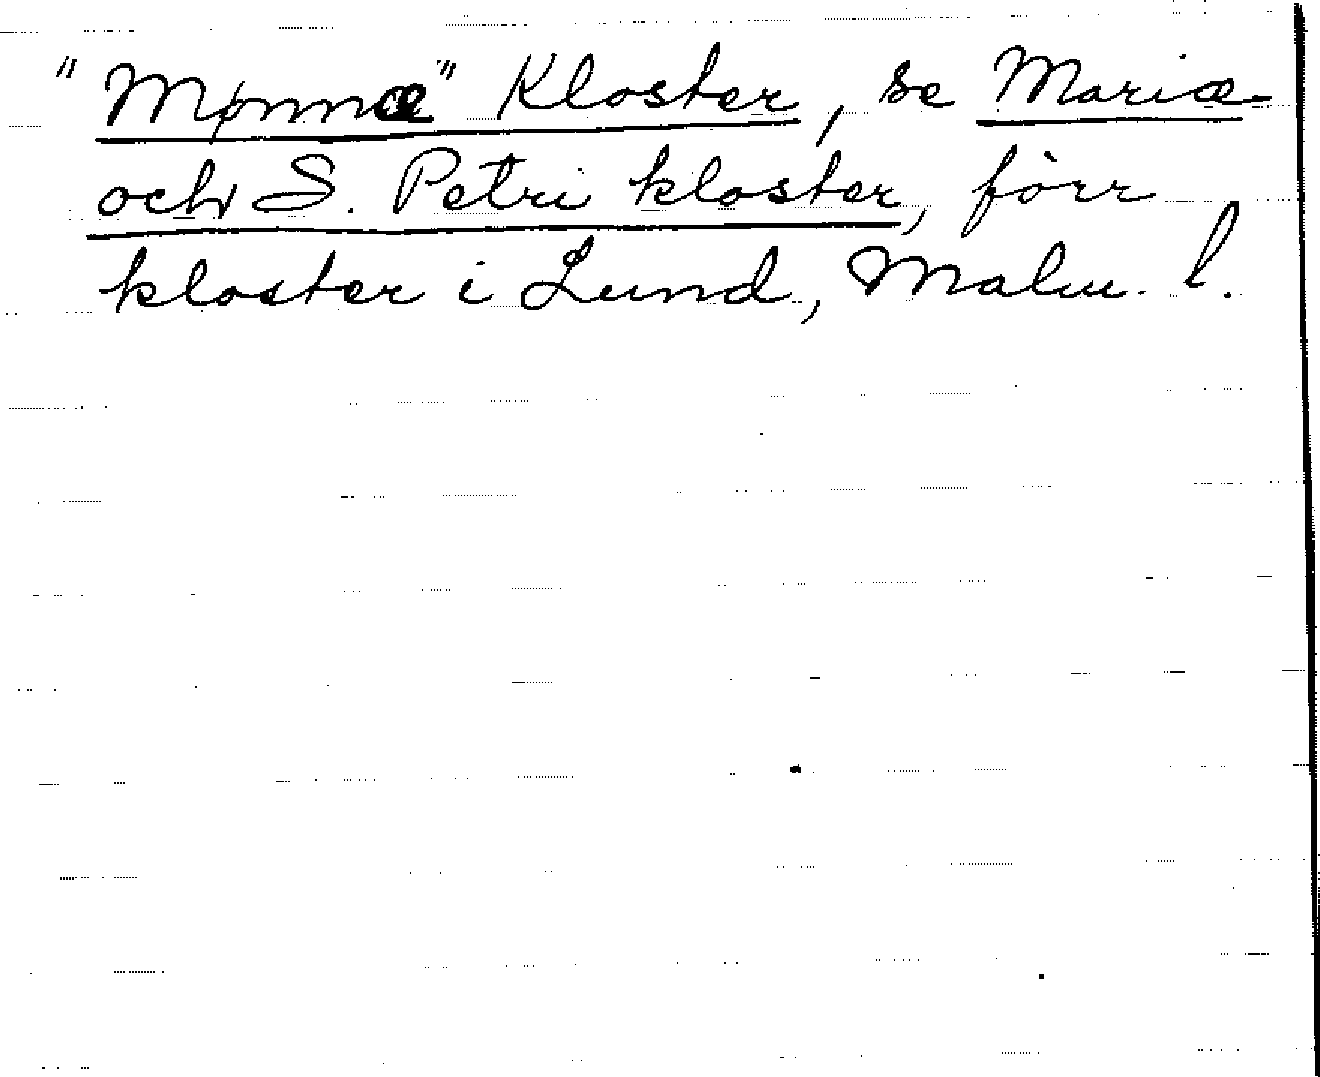 "Mønnæ" Kloster, se Mariæ
och S. Petri kloster, förr
kloster i Lund, Malm. l.